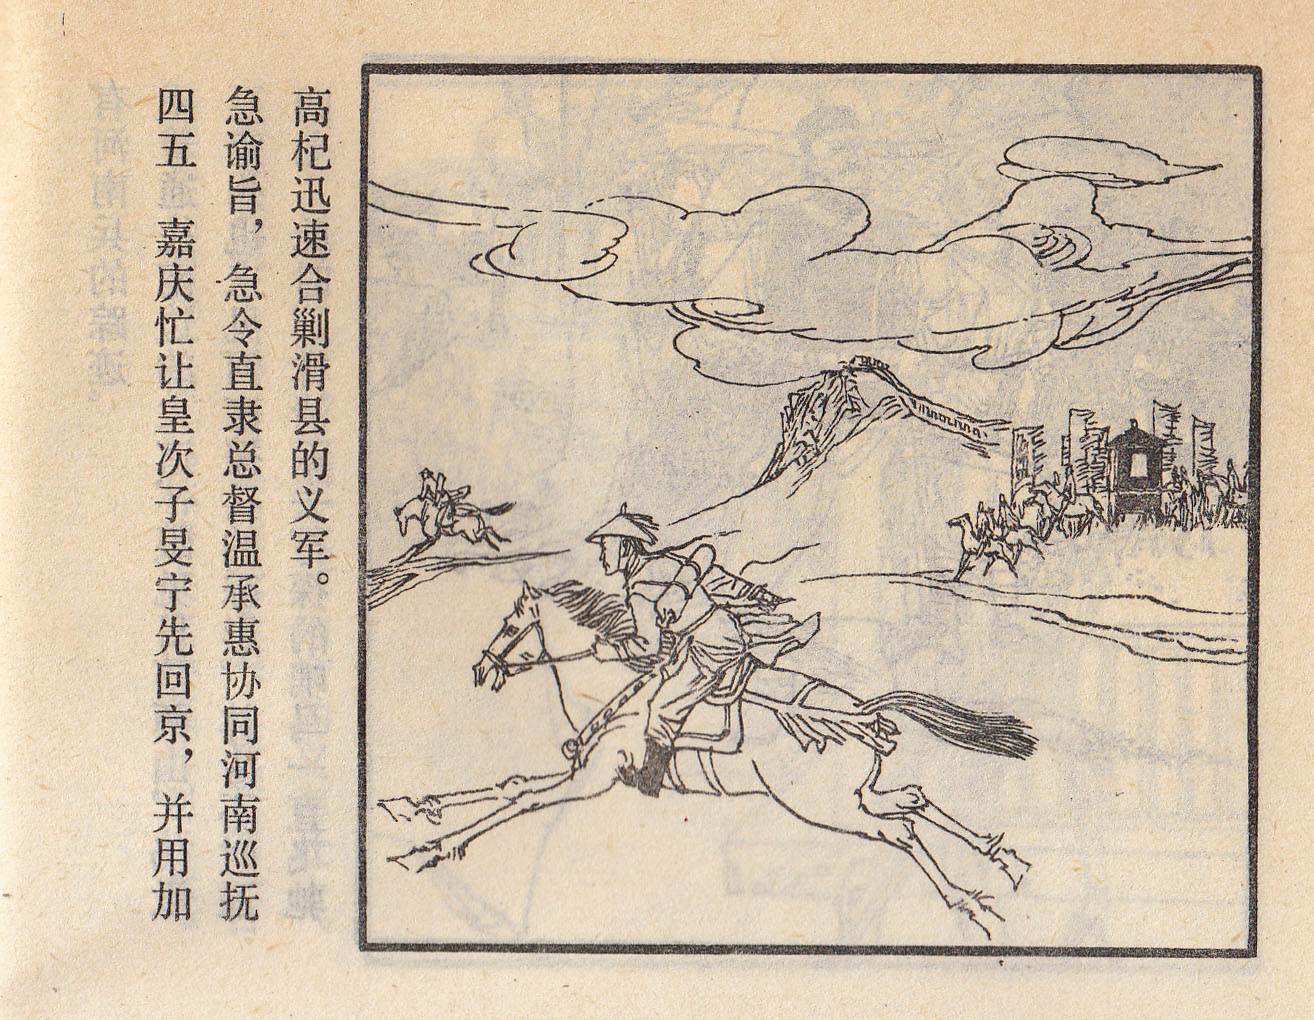 四五 嘉庆忙让皇次子旻宁先回京，并用加
急谕旨，急令直隶总督温承惠协同河南巡抚
高杞迅速合剿滑县的义军。